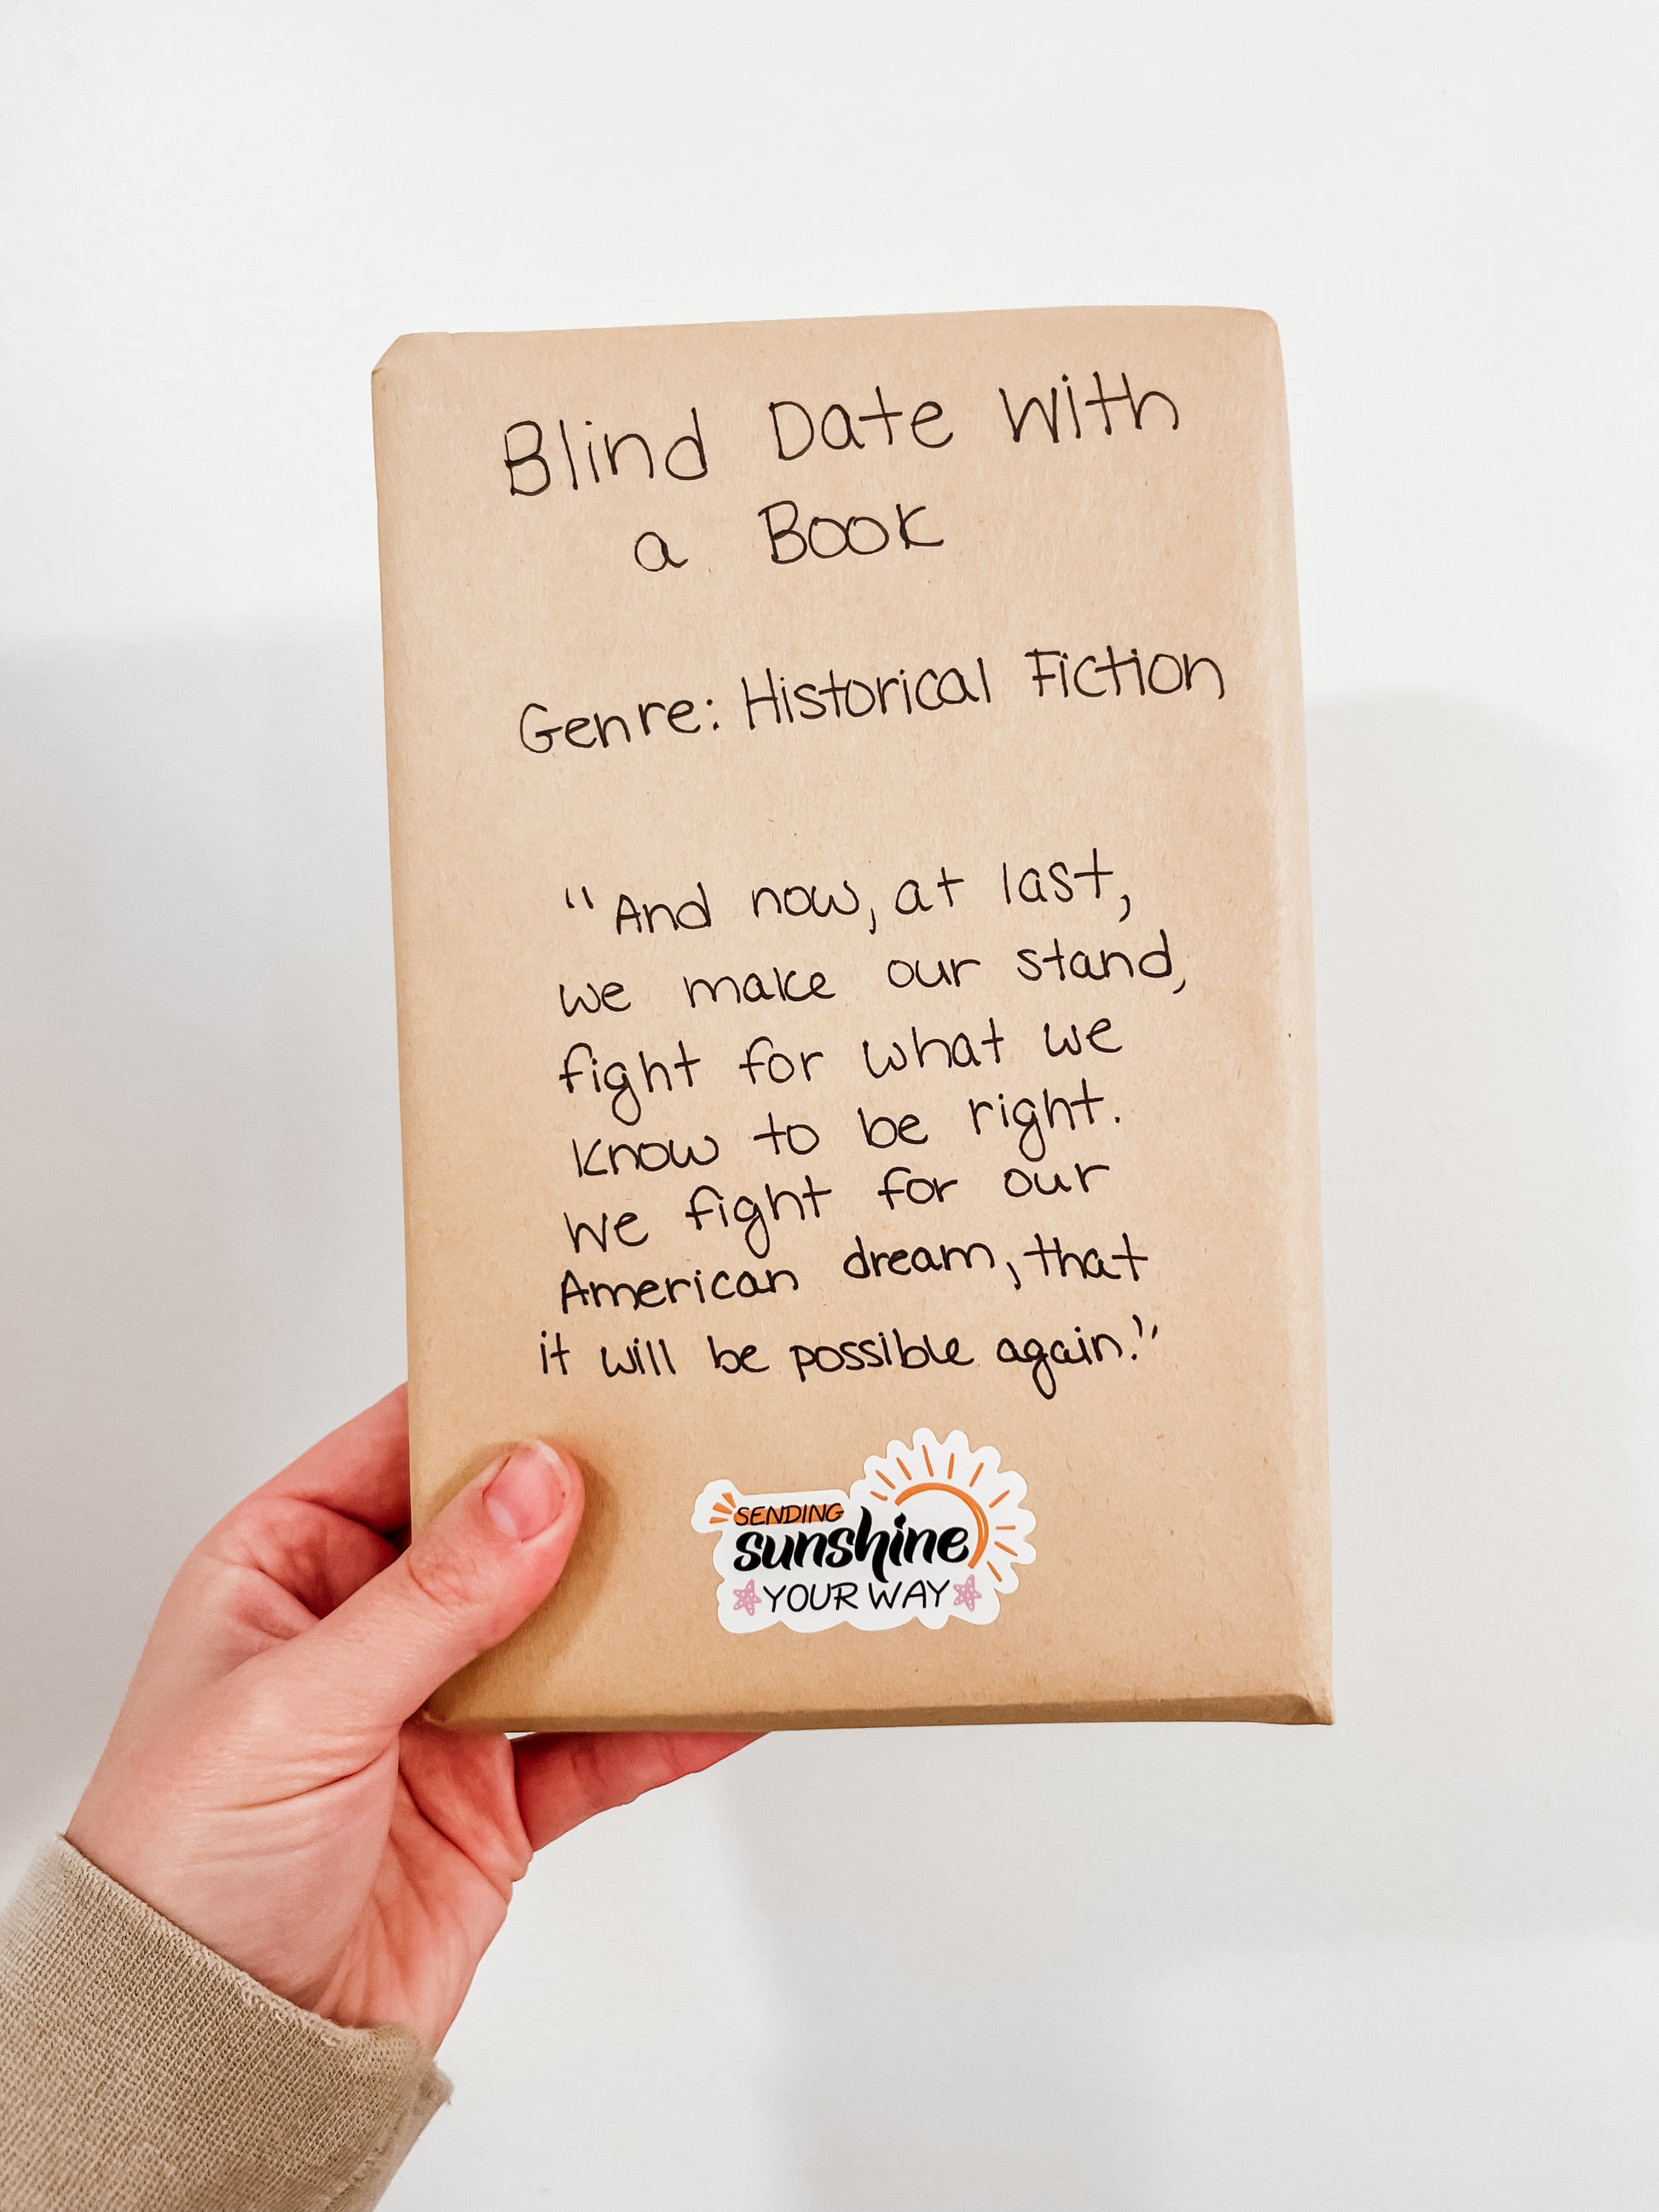 Blind Date With
a Book
Genre: Historical Fiction
"And now, at last,
we make our stand,
fight for what we
know to be right.
We fight for our
American dream, that
it will be possible again."
SENDING
sunshine
YOUR WAY